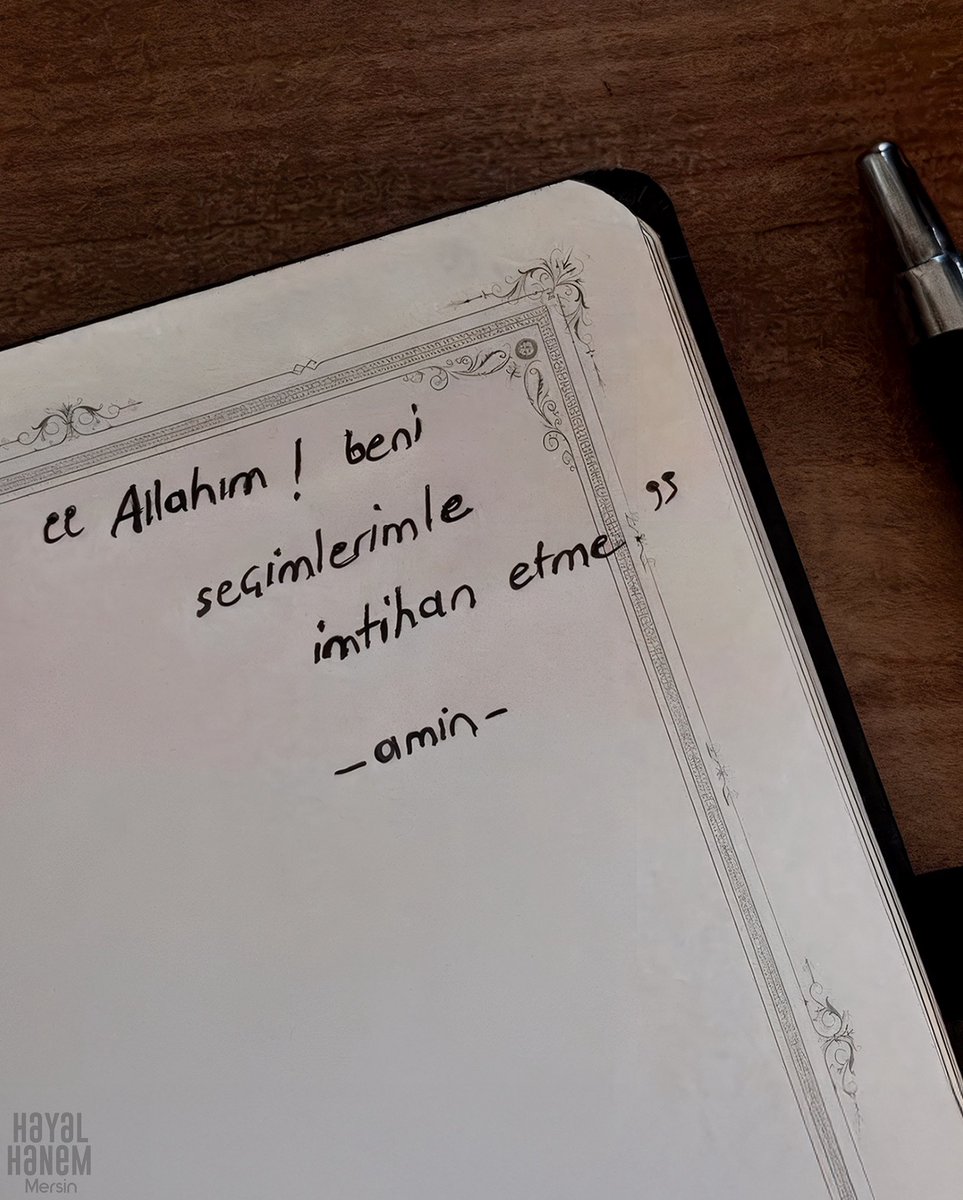 “ Allahım ! beni
seçimlerimle
imtihan etme. ”
-amin-
HAYAL
HANEM
Mersin